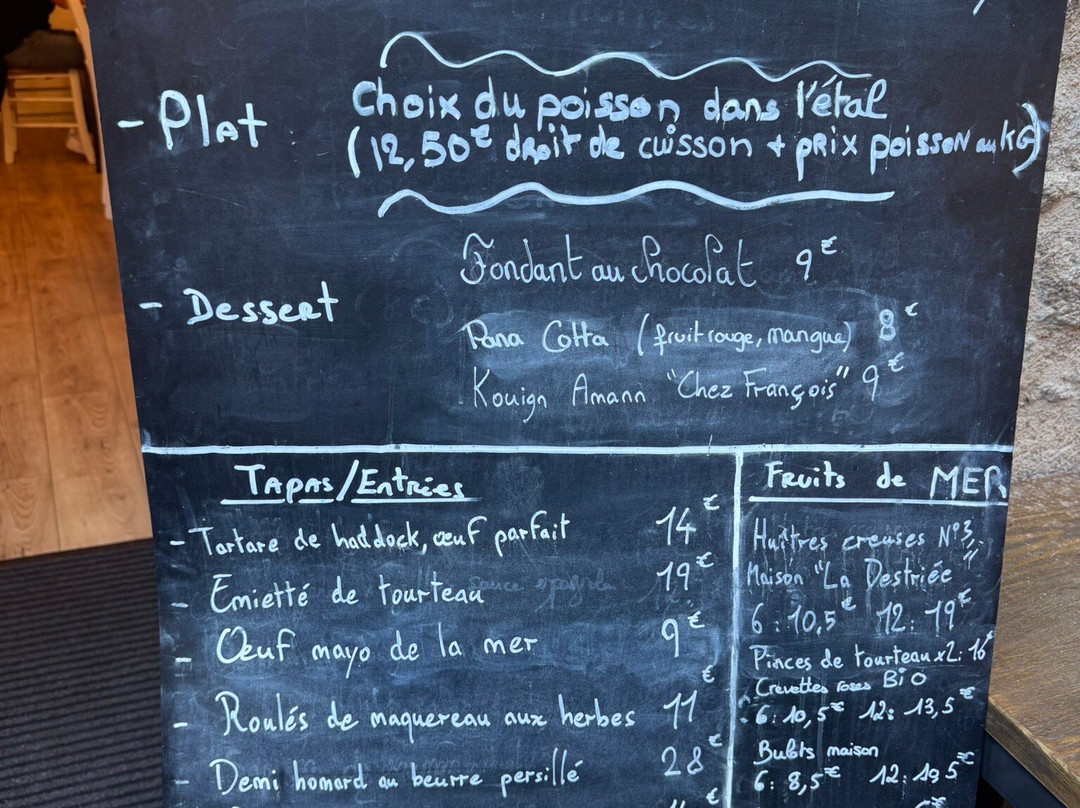 - Plat
Choix du poisson dans l'étal
(12,50€ droit de cuisson + prix poisson au KG)
- Dessert
Fondant au chocolat 9€
Pana Cotta (fruit rouge, mangue) 8€
Kouign Amann "Chez François" 9€
Tapas/Entrées
- Tartare de haddock, œuf parfait 14€
- Emietté de tourteau 19€
- Œuf mayo de la mer 9€
- Roulés de maquereau aux herbes 11€
- Demi homard au beurre persillé 28€
Fruits de MER
Huîtres creuses N°3,
Maison "La Destriée"
6 : 10,5€ 12 : 19€
Pinces de tourteau x2 : 16€
Crevettes roses BiO
6 : 10,5€ 12 : 13,5€
Bulots maison
6 : 8,5€